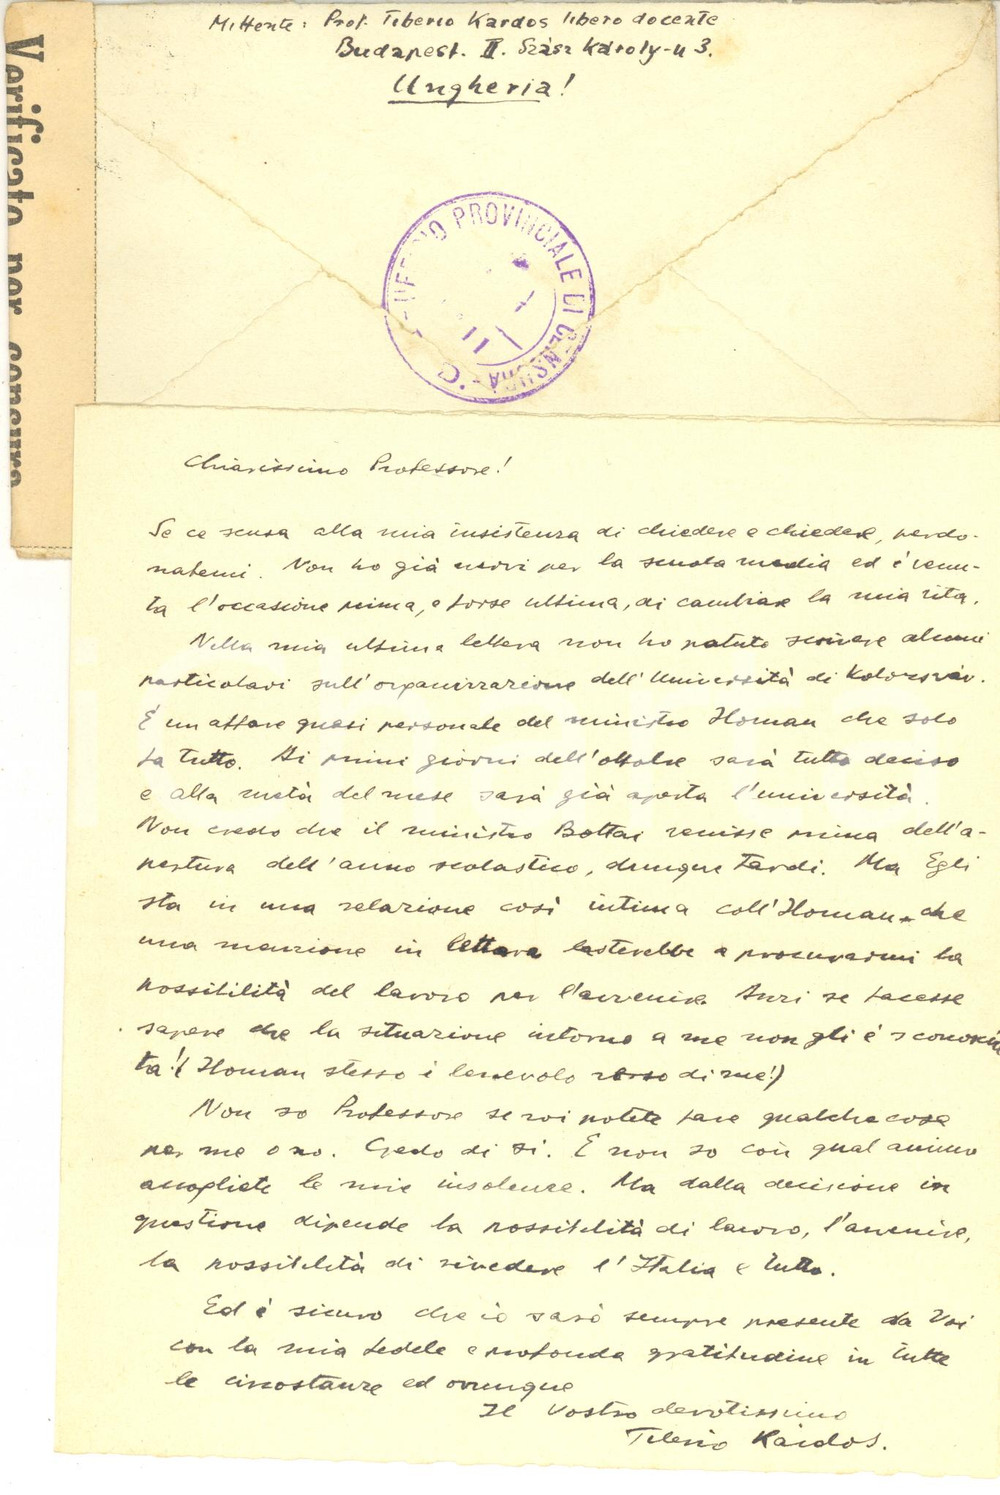 Mittente: Prof. Tiberio Kardos libero docente
Budapest. II. Szász Károly-u 3.
Ungheria!
Verificato per censura
UFFICIO PROVINCIALE DI CENSURA
Chiarissimo Professore!
Se ce scusa alla mia insistenza di chiedere e chiedere, perdo-
natemi. Non ho già nervi per la scuola media ed è venu-
ta l'occasione prima, e forse ultima, di cambiare la mia vita.
Nella mia ultima lettera non ho potuto scrivere alcuni
particolari sull'organizzazione dell'Università di Kolozsvár.
È un affare quasi personale del ministro Homan che solo
fa tutto. Ai primi giorni dell'ottobre sarà tutto deciso
e alla metà del mese sarà già aperta l'università.
Non credo che il ministro Bottai venisse prima dell'a-
pertura dell'anno scolastico, dunque tardi. Ma Egli
sta in una relazione così intima coll'Homan che
una menzione in lettera basterebbe a procurarmi la
possibilità del lavoro per l'avvenire. Anzi se facesse
sapere che la situazione intorno a me non gli è sconosciu
ta! (Homan stesso è benevolo verso di me!)
Non so Professore se voi potete fare qualche cosa
per me o no. Credo di si. E non so con qual animo
accogliete le mie insolenze. Ma dalla decisione in
questione dipende la possibilità di lavoro, l'avvenire,
la possibilità di rivedere l'Italia e tutto.
Ed è sicuro che io sarò sempre presente da Voi
con la mia fedele e profonda gratitudine in tutte
le circostanze ed ovunque
Il Vostro devotissimo
Tiberio Kardos.